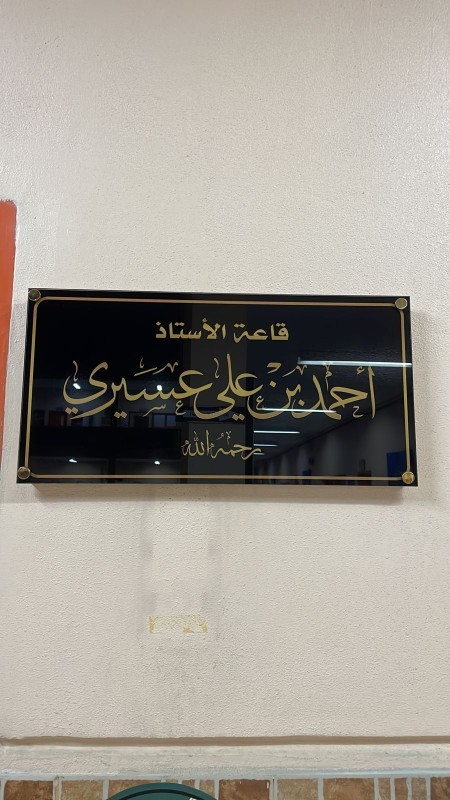 قاعة الأستاذ
أحمد بن علي عسيري
رحمه الله